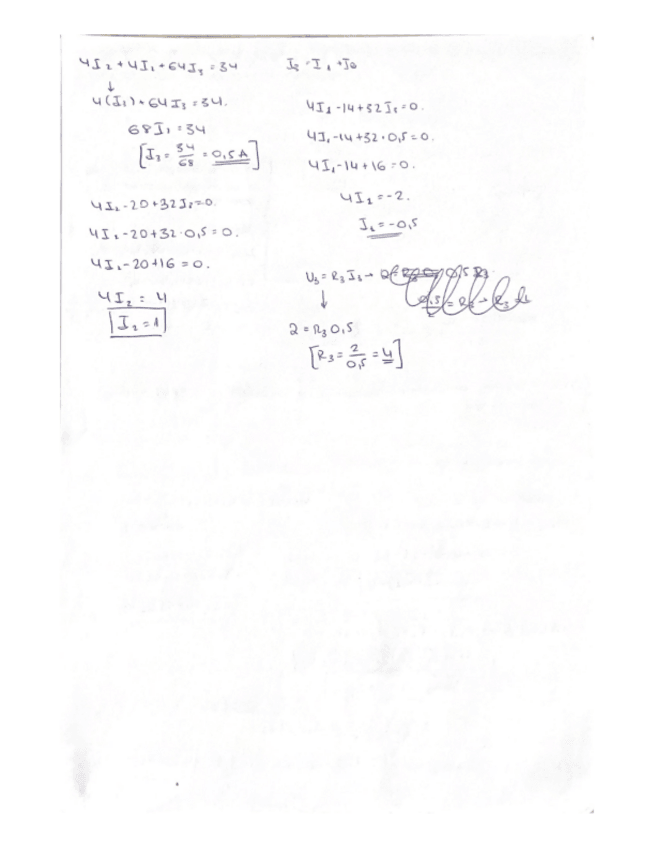 4I₂ + 4I₁ + 64I₃ = 34
↓
4(I₃) + 64I₃ = 34.
68I₃ = 34
[I₃ = 34/68 = 0,5 A]
4I₂ - 20 + 32I₃ = 0.
4I₂ - 20 + 32·0,5 = 0.
4I₂ - 20 + 16 = 0.
4I₂ = 4
I₂ = 1
4I₁ - 14 + 32I₃ = 0.
4I₁ - 14 + 32·0,5 = 0.
4I₁ - 14 + 16 = 0.
4I₁ = -2.
I₁ = -0,5
U₃ = R₃ I₃ →
↓
2 = R₃ 0,5
[R₃ = 2/0,5 = 4]